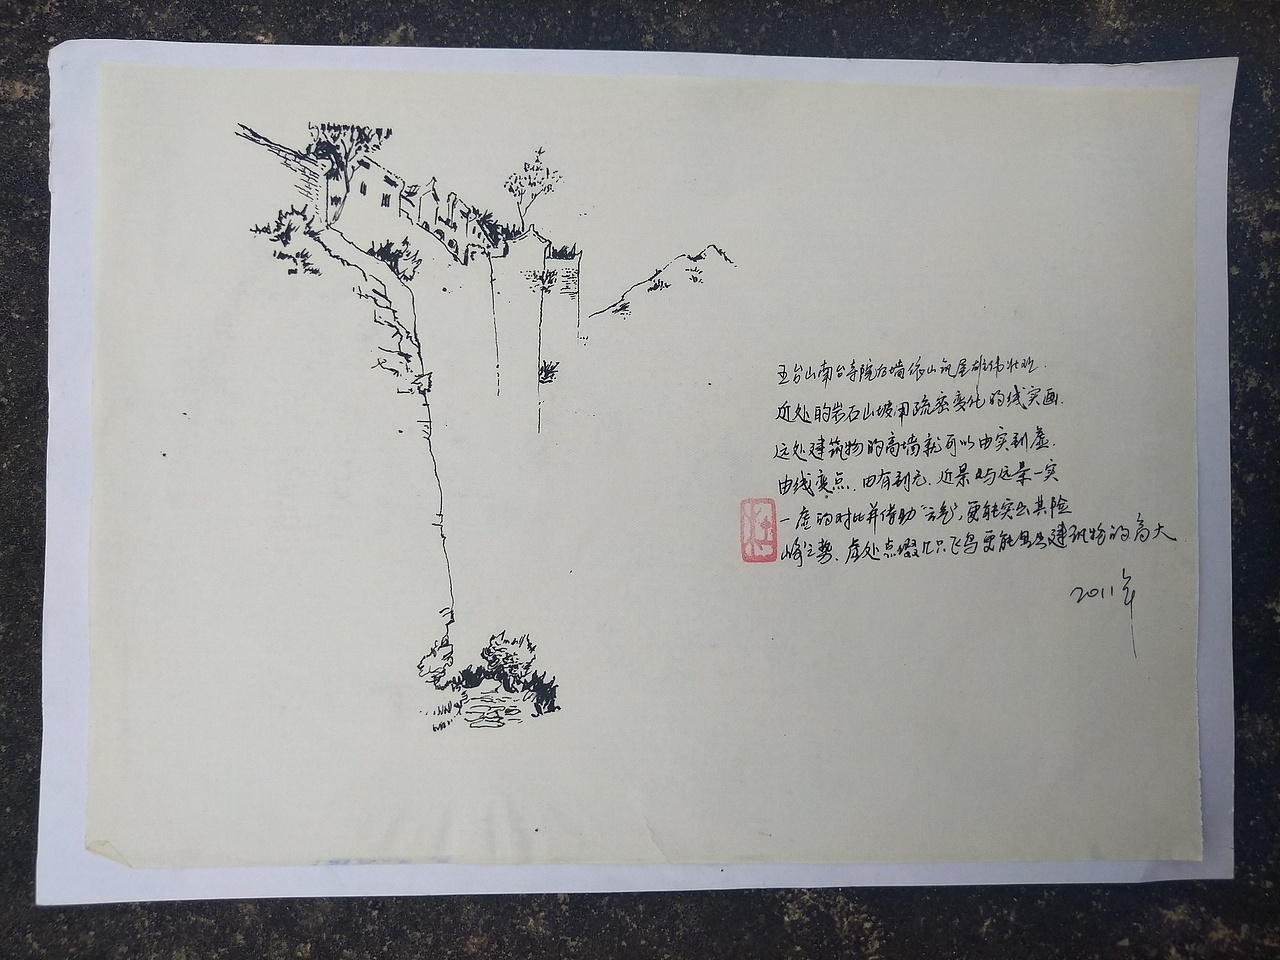 五台山南台寺院高墙依山筑屋雄伟壮观.
近处的岩石山坡用疏密变化的线实画.
远处建筑物的高墙就可以由实到虚.
由线变点.由有到无.近景与远景一实
一虚的对比并借助“云气”,更能突出其险
峰之势.虚处点缀几只飞鸟更能显出建筑物的高大
2011年